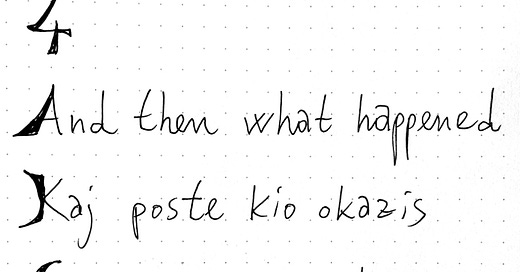 4
And then what happened
Kaj poste kio okazis